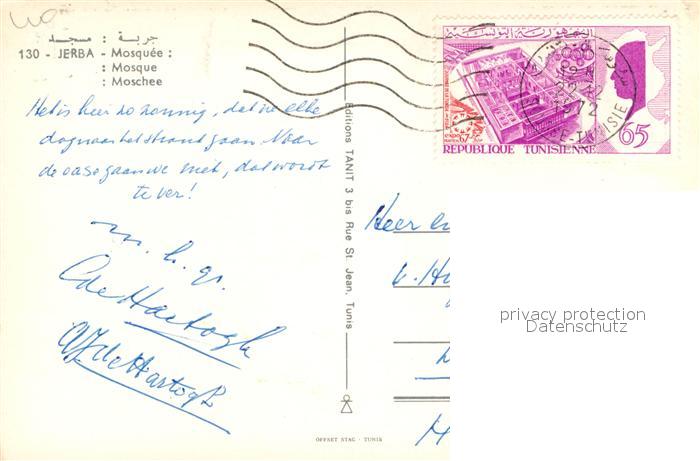 جربة : مسجد
130 - JERBA - Mosquée :
: Mosque
: Moschee
Het is heer zo zonnig, dat we elke
dag naar het strand gaan. Naar
de oase gaan we niet, dat wordt
te ver!
m. h. gr.
C de Hartogh
de Hartogh
Editions TANIT 3 bis Rue St. Jean, Tunis
OFFSET STAG - TUNIS
الجمهورية التونسية
EXPO 67
65
REPUBLIQUE TUNISIENNE
72
TUNISIE
Heer en
v. H
privacy protection
Datenschutz